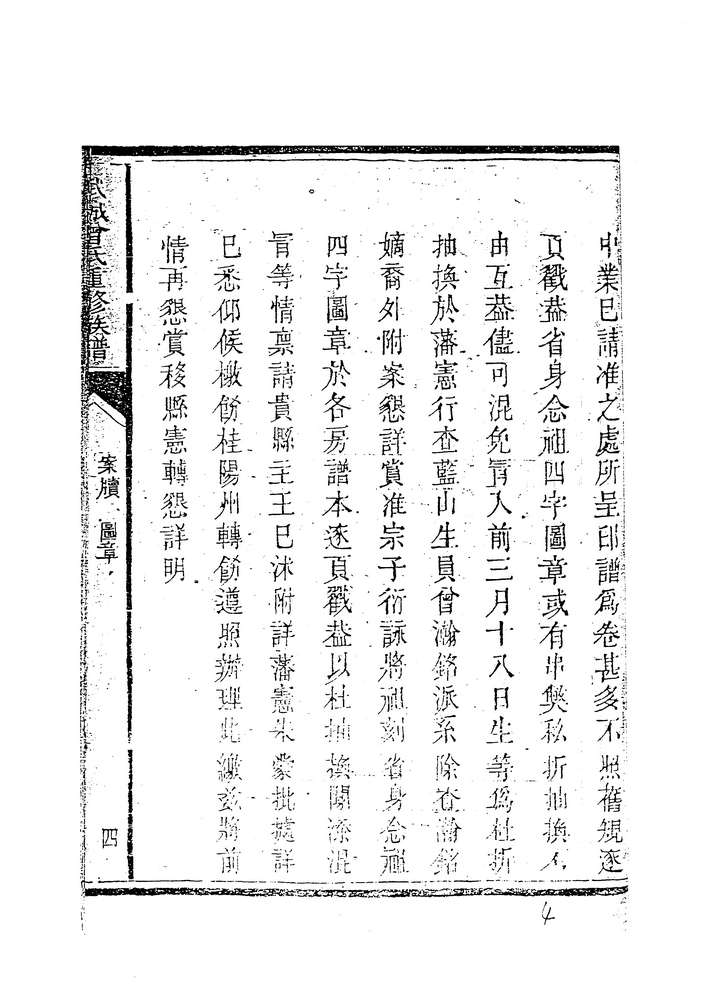 中業已請准之處所呈印譜爲卷甚多不照舊規逐
頁戳蓋省身念祖四字圖章或有串獘私折抽換不
由互蓋儘可混免冐入前三月十八日生等爲杜折
抽換於藩憲行查藍山生員曾瀚銘派系除查瀚銘
嫡裔外附案懇詳賞准宗子衍詠將祖刻省身念祖
四字圖章於各房譜本逐頁戳蓋以杜抽換關漆混
冐等情禀請貴縣主王巳沭附詳藩憲朱蒙批據詳
巳悉仰侯檄飭桂陽州轉飭遵照辦理此繳玆將前
情再懇賞移縣憲轉懇詳明
武城曾氏重修族譜
案牘
圖章
四
4